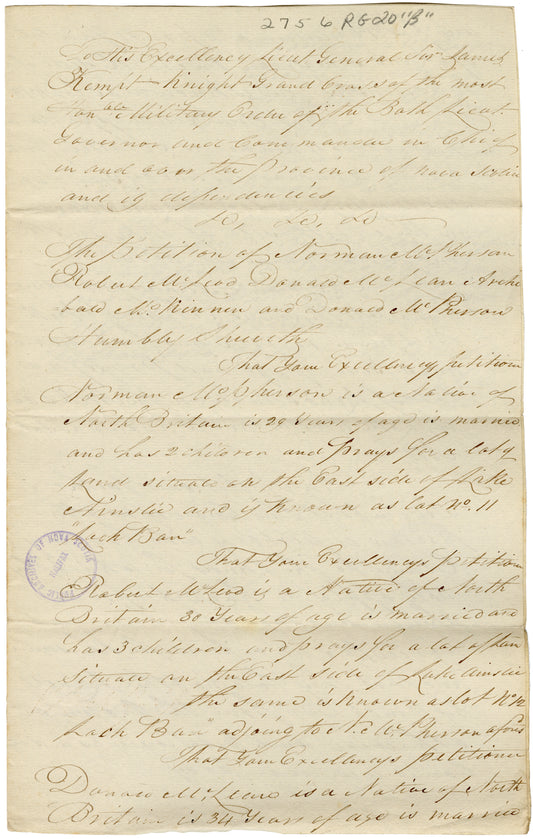 2756 RG20 "B"
To His Excellency Lieut General Sir James
Kempt Knight Grand Cross of the most
Honble Military Order of the Bath Lieut.
Governor and Commander in Chief
in and over the province of nova Scotia
and its dependencies
&c, &c, &c
The Petition of Norman McPherson
Robert McLeod Donald McLean Archi
bald McKinnen and Donald McPherson
Humbly Sheweth
That Your Excellencys petitioner
Norman McPherson is a Native of
North Britain is 29 Years of age is married
and has 2 children and prays for a lot of
Land situate on the East side of Lake
Ainslie and is known as lot No. 11
"Loch Ban"
That Your Excellencys petition
Robert McLeod is a Native of North
Britain 30 Years of age is married and
has 3 children and prays for a lot of land
Situate on the East side of Lake Ainslie
the same is known as lot No 12
Loch Ban" adjoing to N. McPherson afores
That Your Excellencys petitioner
Donald McLeane is a Native of North
Britain is 34 Years of age is married
PUBLIC ARCHIVES OF NOVA SCOTIA
HALIFAX